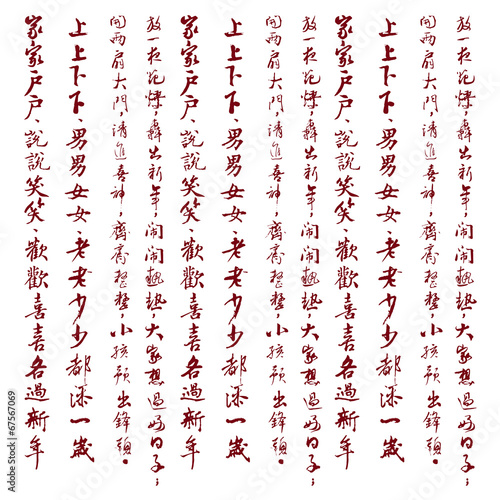 放一夜炮烽，轟出新年，鬧鬧熱熱大家想過好日子；
開兩扇大門，請進喜神，齊齊整整，小孩預出鋒頭。
上上下下、男男女女、老老少少都添一歲
家家戶戶、說說笑笑、歡歡喜喜各過新年
放一夜炮烽，轟出新年，鬧鬧熱熱大家想過好日子；
開兩扇大門，請進喜神，齊齊整整，小孩預出鋒頭。
上上下下、男男女女、老老少少都添一歲
家家戶戶、說說笑笑、歡歡喜喜各過新年
放一夜炮烽，轟出新年，鬧鬧熱熱大家想過好日子；
開兩扇大門，請進喜神，齊齊整整，小孩預出鋒頭。
上上下下、男男女女、老老少少都添一歲
家家戶戶、說說笑笑、歡歡喜喜各過新年
67567069